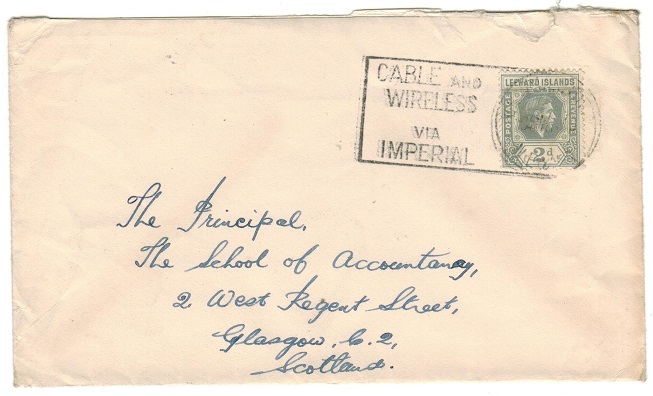 CABLE AND
WIRELESS
VIA
IMPERIAL
LEEWARD ISLANDS
POSTAGE
REVENUE
2d
The Principal,
The School of Accountancy,
2 West Regent Street,
Glasgow, C.2,
Scotland.